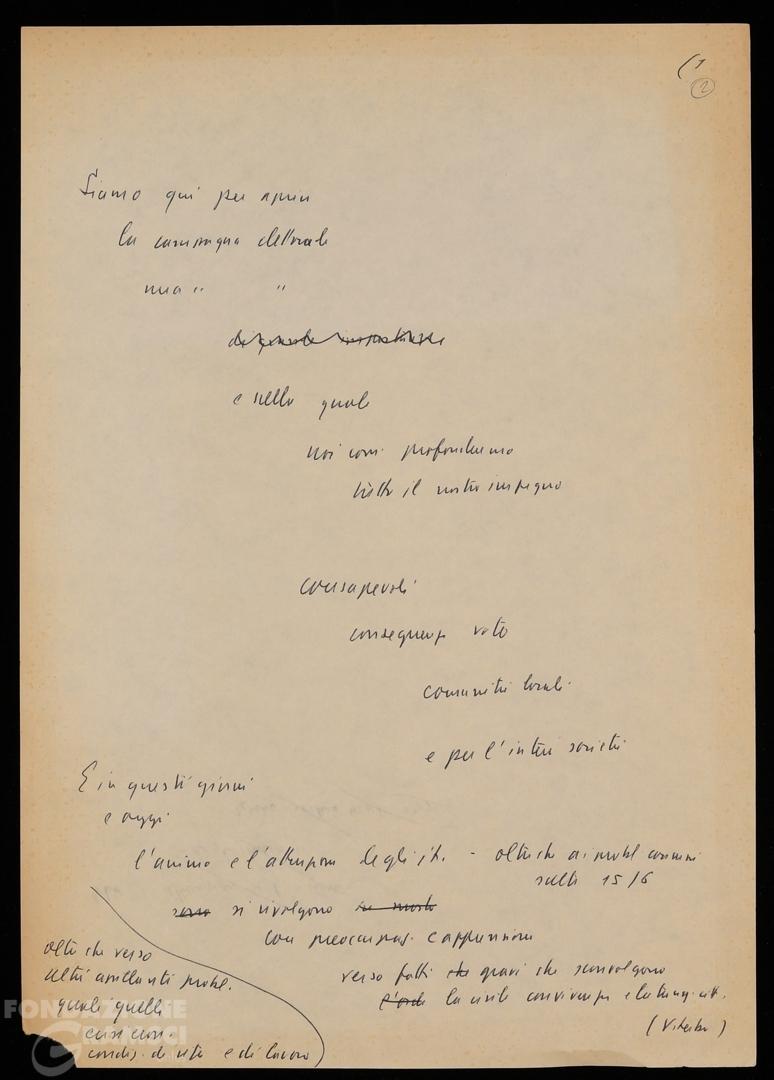 (1
2
Siamo qui per aprire
la campagna elettorale
una " "
e nella quale
noi com. profonderemo
tutto il nostro impegno
consapevoli
conseguenze voto
comunità locali
e per l'intera società
E in questi giorni
e oggi
l'animo e l'attenzione degli it. - oltre che ai probl. comuni
sulle 15/6
sono si rivolgono
con preoccupaz. e apprensione
verso fatti che gravi che sconvolgono
la civile convivenza e la
(Viterbo)
oltre che verso
altri assillanti probl.
quali quelli
crisi econ.
condiz. di vita e di lavoro)
FONDAZIONE
GRAMSCI